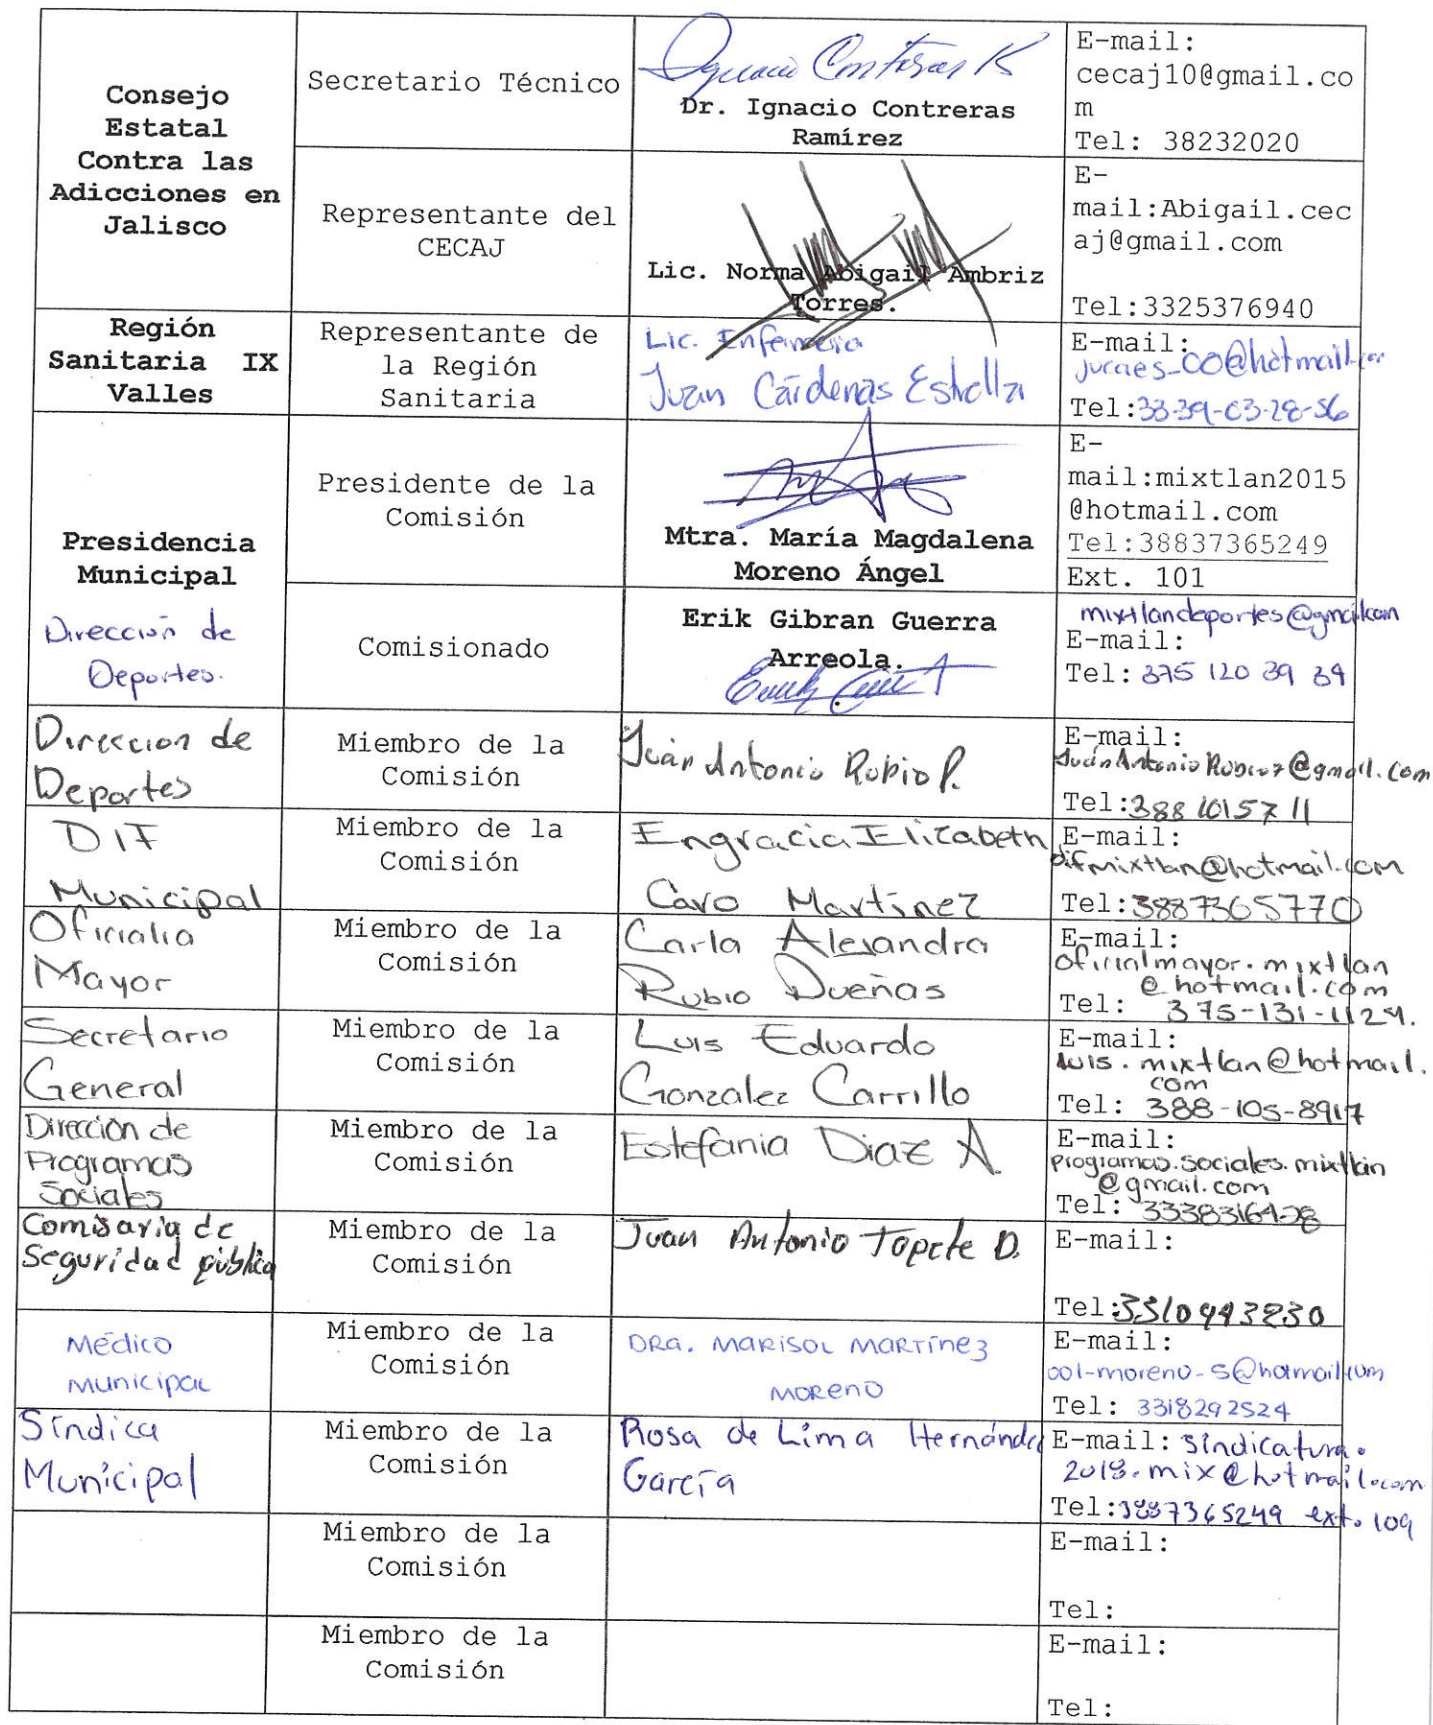 Consejo
Estatal
Contra las
Adicciones en
Jalisco
Secretario Técnico
Ignacio Contreras R
Dr. Ignacio Contreras
Ramírez
E-mail:
cecaj10@gmail.co
m
Tel: 38232020
Representante del
CECAJ
Lic. Norma Abigail Ambriz
Torres.
E-
mail:Abigail.cec
aj@gmail.com
Tel:3325376940
Región
Sanitaria IX
Valles
Representante de
la Región
Sanitaria
Lic. Enfermeria
Juan Cárdenas Estrella
E-mail:
jucaes_00@hotmail.com
Tel:33-39-03-28-56
Presidencia
Municipal
Dirección de
Deportes.
Presidente de la
Comisión
Mtra. María Magdalena
Moreno Ángel
E-
mail:mixtlan2015
@hotmail.com
Tel:38837365249
Ext. 101
Comisionado
Erik Gibran Guerra
Arreola.
mixtlandeportes@gmail.com
E-mail:
Tel: 375 120 39 39
Direccion de
Deportes
Miembro de la
Comisión
Juan Antonio Rubio P.
E-mail:
@gmail.com
Tel:388 1015711
DIF
Municipal
Miembro de la
Comisión
Engracia Elizabeth
Caro Martinez
E-mail:
difmixtlan@hotmail.com
Tel:3887365770
Oficialia
Mayor
Miembro de la
Comisión
Carla Alejandra
Rubio Dueñas
E-mail:
oficialmayor.mixtlan
@hotmail.com
Tel: 375-131-1129.
Secretario
General
Miembro de la
Comisión
Luis Eduardo
Gonzalez Carrillo
E-mail:
luis.mixtlan@hotmail.
com
Tel: 388-105-8917
Dirección de
Programas
Sociales
Miembro de la
Comisión
Estefania Diaz A.
E-mail:
programas.sociales.mixtlan
@gmail.com
Tel: 3338316428
Comisaria de
Seguridad pública
Miembro de la
Comisión
Juan Antonio Topete D.
E-mail:
Tel:3310943230
Médico
Municipal
Miembro de la
Comisión
DRa. Marisol Martínez
Moreno
E-mail:
Tel: 3318292524
Síndica
Municipal
Miembro de la
Comisión
Rosa de Lima Hernández
García
E-mail: sindicatura.
2018.mix@hotmail.com
Tel:3887365249 ext. 109
Miembro de la
Comisión
E-mail:
Tel:
Miembro de la
Comisión
E-mail:
Tel: